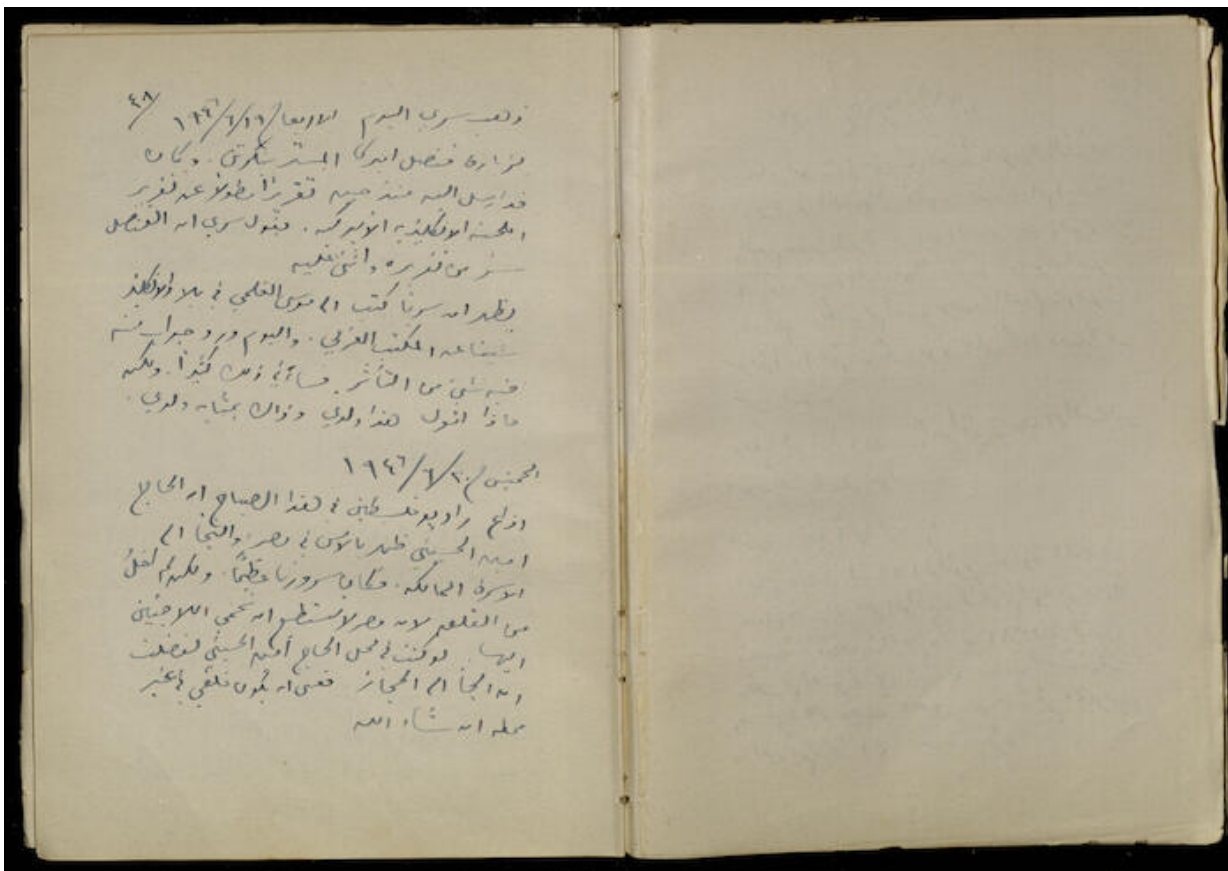 ٤٠٨
ذهب سري اليوم الاربعا ١٩/٦/١٩٤٦
لزيارة قنصل اميركا المستر بنكرتن. وكان
قد ارسل اليه منذ حين تقريراً مطولاً عن تقرير
اللجنة الانكليزية الاميركية. فيقول سري ان القنصل
سر من تقريره واثنى عليه
يظهر ان سرياً كتب الى موسى العلمي في بلاد الانكليز
شيئا عن المكتب العربي. واليوم ورد جواب منه
فيه شيء من التأثر. فساءني ذلك كثيراً. ولكن
ماذا اقول هذا ولدي وذاك بمثابة ولدي.
الخميس ٢٠/٦/١٩٤٦
اذاع راديو فلسطين في هذا الصباح ان الحاج
امين الحسيني ظهر بالامس في مصر والتجأ الى
الاسرة المالكة. فكان سرورنا عظيماً. ولكن لم اخلُ
من القلق لان مصر لا تستطيع ان تحمي اللاجئين
اليها. لو كنت في محل الحاج أمين الحسيني لفضلت
ان الجأ الى الحجاز. فعسى ان يكون قلقي في غير
محله ان شاء الله